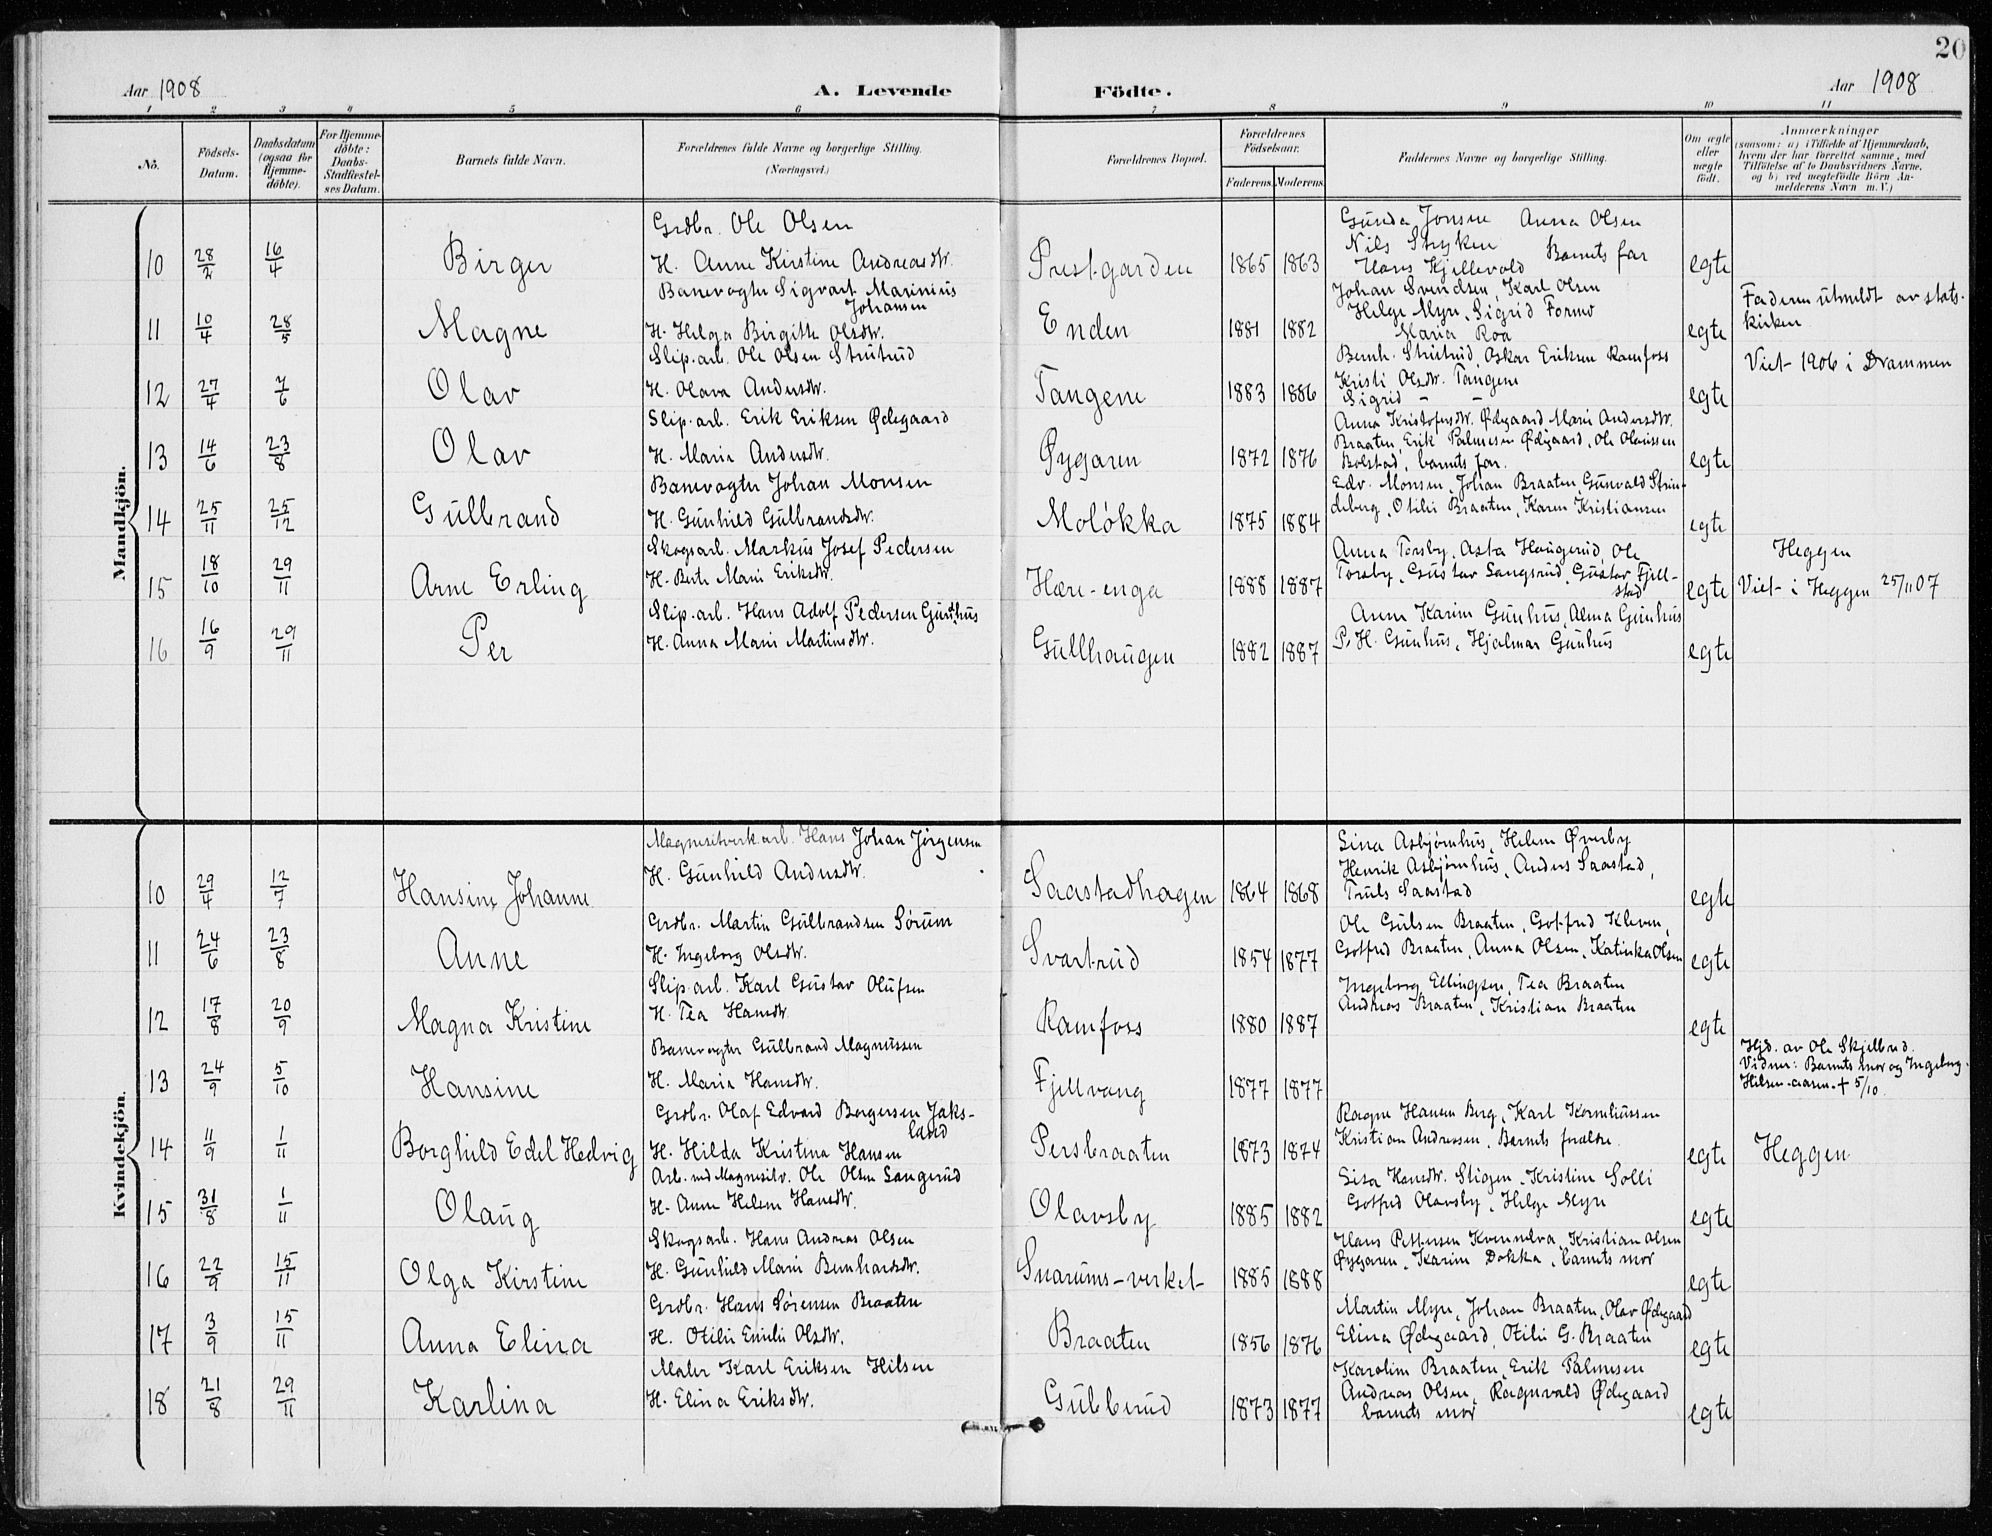 20
Aar 1908 A. Levende Födte. Aar 1908
1 2 3 4 5 6 7 8 9 10 11
No. Födsels-Datum. Daabsdatum (ogsaa for Hjemme-döbte). For Hjemme-döbte: Daabs-Stadfæstel-ses Datum. Barnets fulde Navn. Forældrenes fulde Navne og borgerlige Stilling. (Næringsvei.) Forældrenes Bopæl. Forældrenes Födselsaar. Faderens. Moderens. Faddernes Navne og borgerlige Stilling. Om ægte eller uægte födt. Anmærkninger (saasom: a) i Tilfælde af Hjemmedaab, hvem der har forrettet samme, med Tilföielse af to Daabsvidners Navne. og b) ved uegtefödte Börn An-melderens Navn m. V.)
Mandkjön.
Grdbr. Ole Olsen Gunda Jonsen Anna Olsen
Nils Stryken Barnets far
10 28/2 16/4 Birger H. Anne Kirstine Andreasdtr. Prestgarden 1865 1863 Hans Kjellevold egte
Banevogter Sigvart Marinius Johansen Johan Svendsen, Karl Olsen
Helge Myre, Sigrid Formo Faderen utmeldt av stats-
11 10/4 28/5 Magne H. Helga Birgitte Olsdtr. Enden 1881 1882 Maria Roa egte kirken
Slip.arb. Ole Olsen Strutrud Bernh. Strutrud, Oskar Eriksen Ramfoss
Kristi Olsdtr. Tangene Viet 1906 i Drammen
12 27/4 7/6 Olav H. Olava Andersdtr. Tangene 1883 1886 Sigrid - - egte
Slip.arb. Erik Eriksen Ødegaard Anna Kristofersdtr. Ødegaard Marie Andersdtr.
Braaten, Erik Palmesen Ødegaard, Ole Olavssen
13 14/6 23/8 Olav H. Maria Andersdtr. Øygaren 1872 1876 Bolstad, barnets far. egte
Banevogter Johan Monsen Edv. Monsen, Johan Braaten, Gunvald Strin-
14 25/11 25/12 Gulbrand H. Gunhild Gulbrandsdtr. Moløkka 1875 1884 deberg, Otilie Braaten, Karen Kristiansen egte
Skogsarb. Markus Josef Pedersen Anna Torsby, Asta Haugerud, Ole Heggen
15 18/10 29/11 Arne Erling H. Berte Marie Eriksdtr. Hære-enga 1888 1887 Torsby, Gustav Sangsrud, Gustav Fjell-stad egte Viet i Heggen 25/11 07
Slip.arb. Hans Adolf Pedersen Gunhus Anne Karine Gunhus, Alma Gunhus
16 16/9 29/11 Per H. Anna Marie Martinsdtr. Gullhaugen 1882 1887 P. H. Gunhus, Hjalmar Gunhus egte
Kvindekjön.
Magnesitverk.arb. Hans Johan Jørgensen Lina Asbjørnhus, Helene Øverby
Henrik Asbjørnhus, Anders Saastad,
10 29/4 12/7 Hansine Johanne H. Gunhild Andersdtr. Saastadhagen 1864 1868 Truls Saastad egte
Grdbr. Martin Gulbrandsen Sørum Ole Gulsen Braaten, Gotfred Kleven,
11 24/6 23/8 Anne H. Ingeborg Olsdtr. Svartrud 1854 1877 Gotfred Braaten, Anna Olsen, Katinka Olsen egte
Slip.arb. Karl Gustav Olufsen Ingeborg Ellingsen, Tea Braaten
12 17/8 20/9 Magna Kristine H. Tea Hansdtr. Ramfoss 1880 1887 Andreas Braaten, Kristian Braaten egte
Banevogter Gulbrand Magnussen Hjd. av Ole Skjelbred.
Vidner: Barnets mor og Ingeborg
13 24/9 5/10 Hansine H. Maria Hansdtr. Fjellvang 1877 1877 Hilsen-aasen. + 5/10.
Grdbr. Olaf Edvard Borgersen Jaks-land Ragne Hansen Berg, Karl Korneliussen
14 11/9 1/11 Borghild Edel Hedvig H. Hilda Kristina Hansen Persbraaten 1873 1874 Kristian Andreasen, Barnets forældre. egte Heggen
Arb. ved Magnesitv. Ole Olsen Sangerud Lisa Hansdtr. Stigen, Kristine Solli
15 31/8 1/11 Olaug H. Anne Helene Hansdtr. Olavsby 1885 1882 Gotfred Olavsby, Helge Myre egte
Skogsarb. Hans Andreas Olsen Hans Pettersen Kvennelva, Kristian Olsen
16 22/9 15/11 Olga Kirstine H. Gunhild Marie Bernhardsdtr. Snarums-verket 1885 1888 Øygaren, Karine Dokka, barnets mor egte
Grdbr. Hans Sørensen Braaten Martin Myre, Johan Braaten, Olav Ødegaard
17 3/9 15/11 Anna Elina H. Otilie Emilie Olsdtr. Braaten 1856 1876 Elina Ødegaard, Otilie G. Braaten egte
Maler Karl Eriksen Hilsen Karoline Braaten, Erik Palmesen
18 21/8 29/11 Karlina H. Elina Eriksdtr. Gubberud 1873 1877 Andreas Olsen, Ragnvald Ødegaard egte
barnets mor